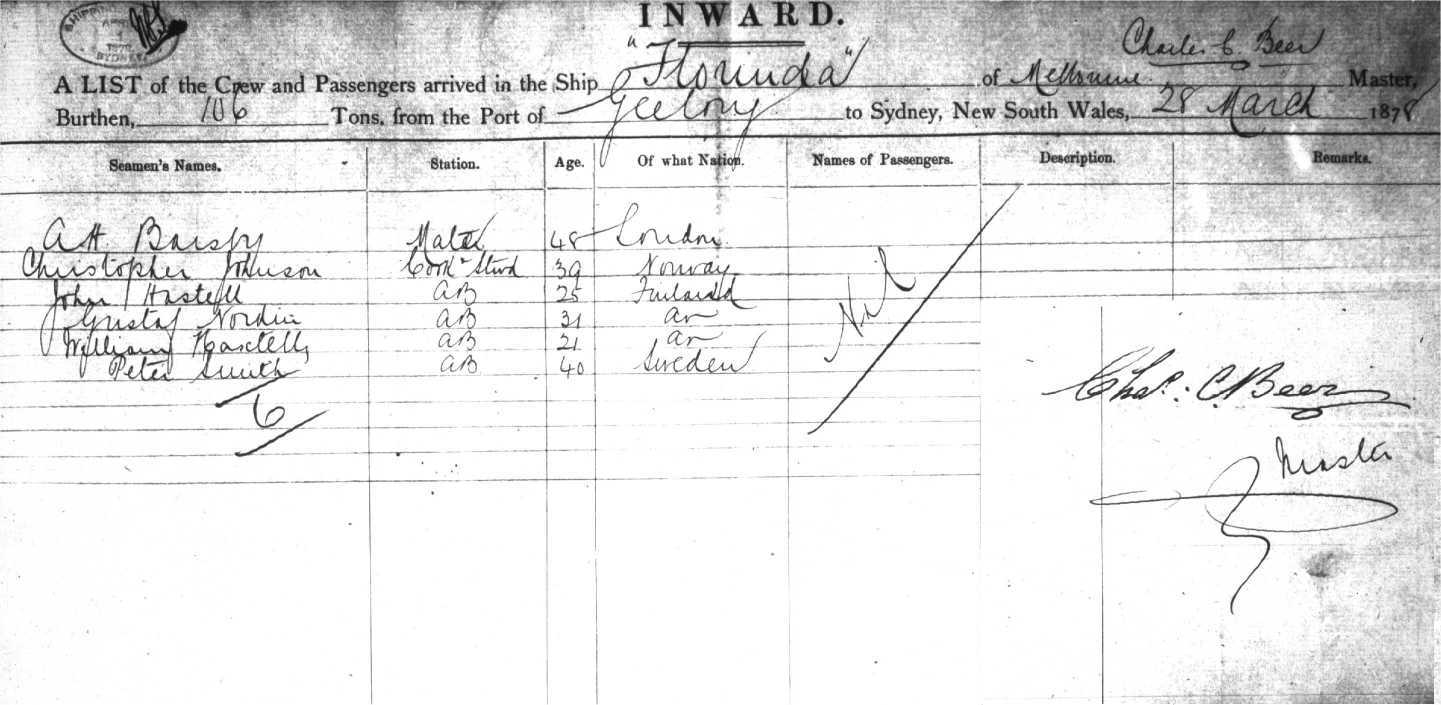 INWARD.
Charles C. Beer
A LIST of the Crew and Passengers arrived in the Ship "Florinda" of Melbourne. Master,
Burthen, 106 Tons, from the Port of Geelong to Sydney, New South Wales, 28 March 1878
Seamen's Names. Station. Age. Of what Nation. Names of Passengers. Description. Remarks.
A.H. Mate 48 London
Christopher Johnson Cook & Stwd 39 Norway
John AB 25 Finland
Gustaf Nordin AB 31
William AB 21
Peter Smith AB 40 Sweden
6
Nil
Chas. C. Beer
Master